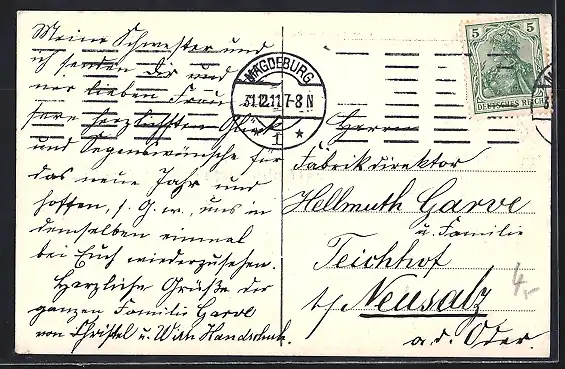 Meine Schwester und
ich senden Dir und
ner lieben Frau
sere herzlichsten Glück
und Segenswünsche für
das neue Jahr und
hoffen, s. G. w., uns in
demselben einmal
bei Euch wiederzusehen.
Herzliche Grüße der
ganzen Familie Garve
von Christel u. Wilh. Handschuh.
MAGDEBURG
31.12.11 7-8 N
1
5 5
DEUTSCHES REICH
Herrn
Fabrikdirektor
Hellmuth Garve
u. Familie
Teichhof
b/ Neusalz
a. d. Oder.
4,-